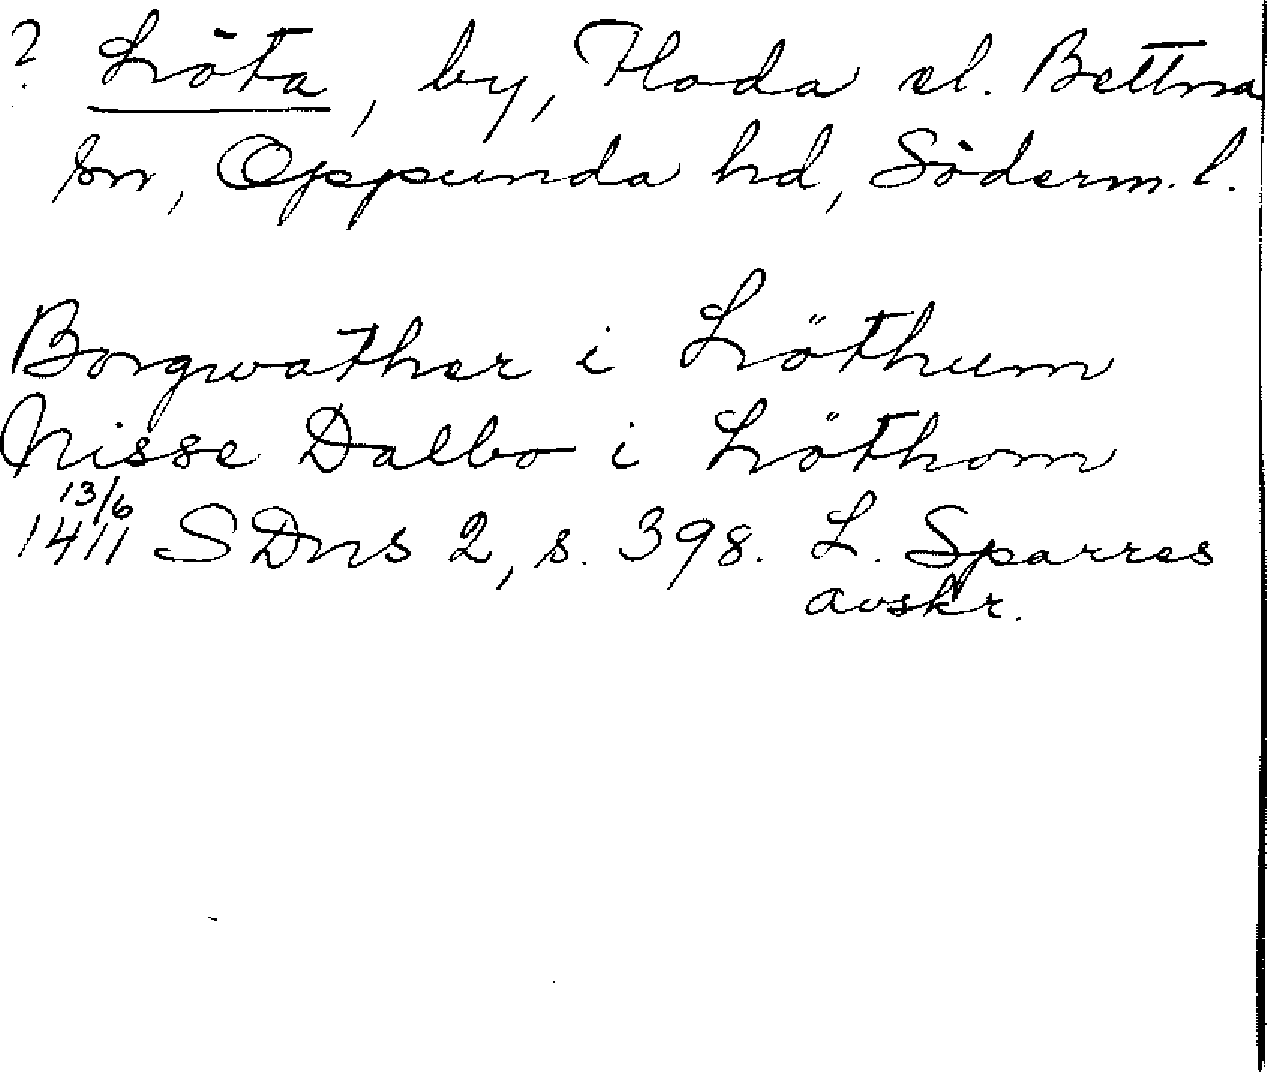 ? Löta, by, Floda el. Bettna
sn, Oppunda hd, Söderm. l.
Borgwather i Löthum
Nisse Dalbo i Löthom
13/6
1411 SDns 2, s. 398. L. Sparres
avskr.